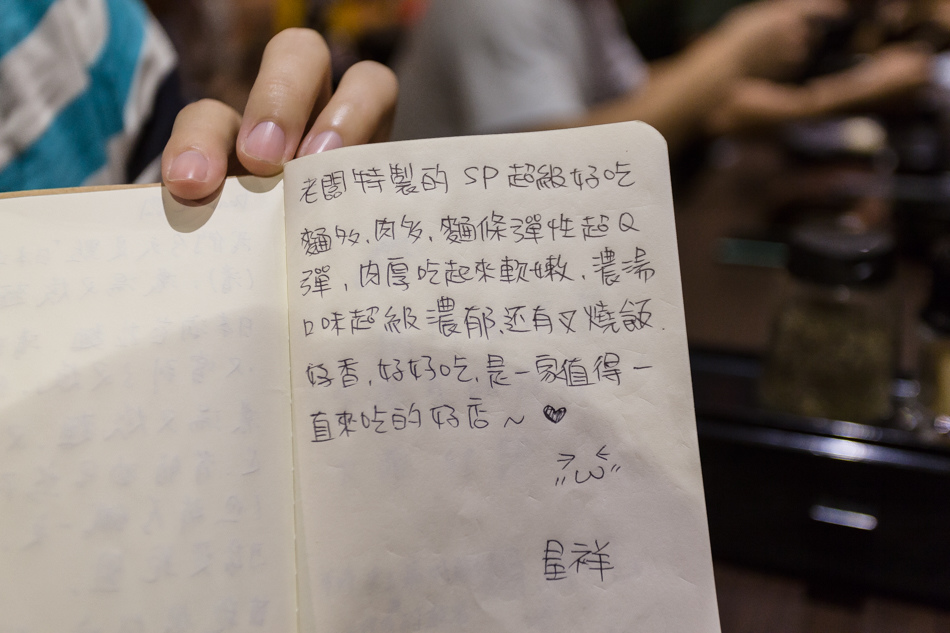 老闆特製的 SP 超級好吃
麵多、肉多、麵條彈性超Q
彈，肉厚吃起來軟嫩、濃湯
口味超級濃郁、还有叉燒飯、
好香、好好吃、是一家值得一
直來吃的好店～♥
祥